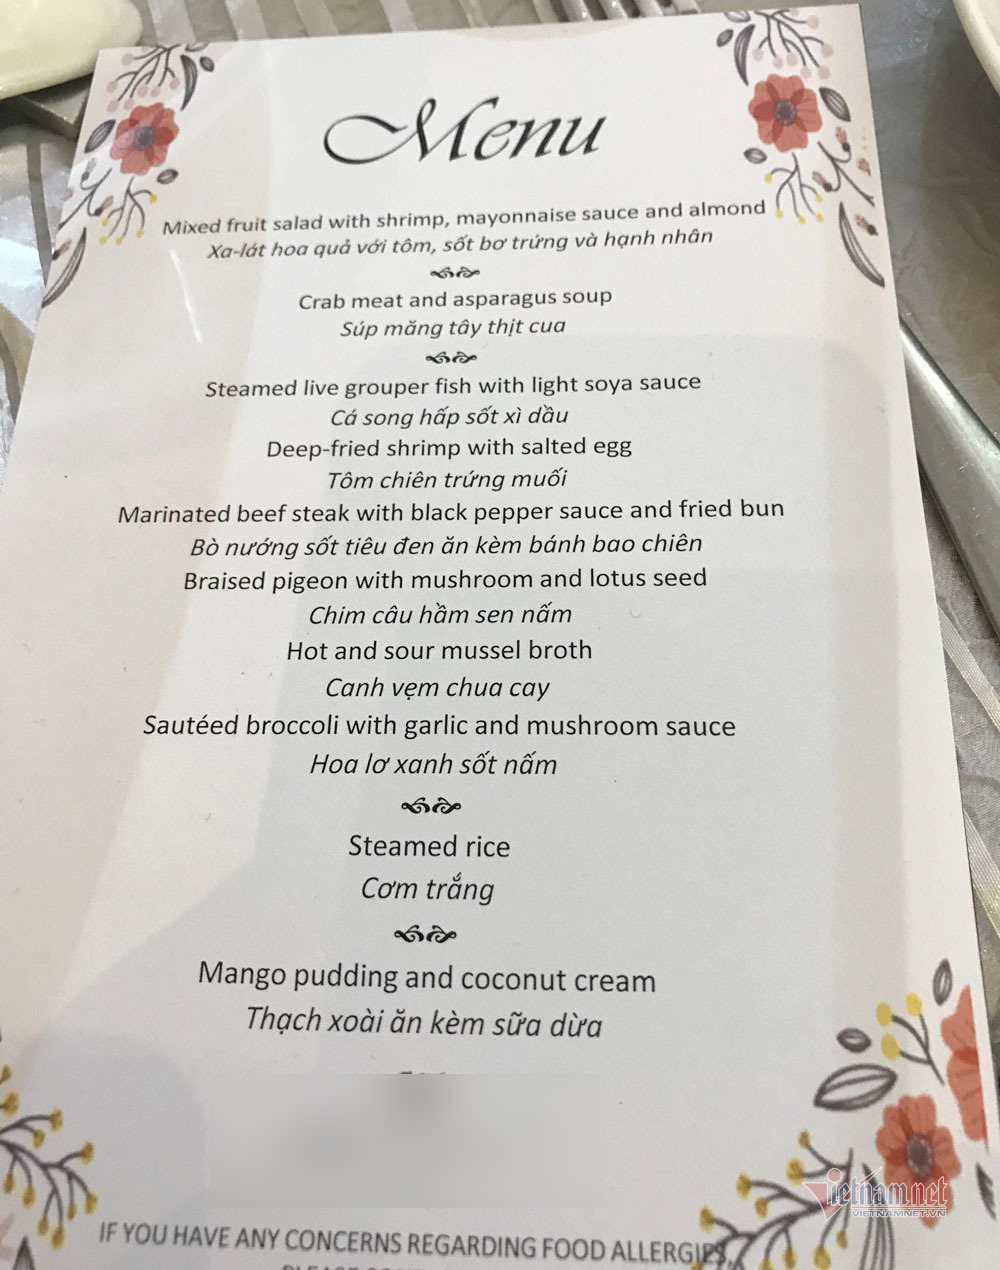 Menu
Mixed fruit salad with shrimp, mayonnaise sauce and almond
Xa-lát hoa quả với tôm, sốt bơ trứng và hạnh nhân
Crab meat and asparagus soup
Súp măng tây thịt cua
Steamed live grouper fish with light soya sauce
Cá song hấp sốt xì dầu
Deep-fried shrimp with salted egg
Tôm chiên trứng muối
Marinated beef steak with black pepper sauce and fried bun
Bò nướng sốt tiêu đen ăn kèm bánh bao chiên
Braised pigeon with mushroom and lotus seed
Chim câu hầm sen nấm
Hot and sour mussel broth
Canh vẹm chua cay
Sautéed broccoli with garlic and mushroom sauce
Hoa lơ xanh sốt nấm
Steamed rice
Cơm trắng
Mango pudding and coconut cream
Thạch xoài ăn kèm sữa dừa
Vietnamnet
VIETNAMNET.VN
IF YOU HAVE ANY CONCERNS REGARDING FOOD ALLERGIES,